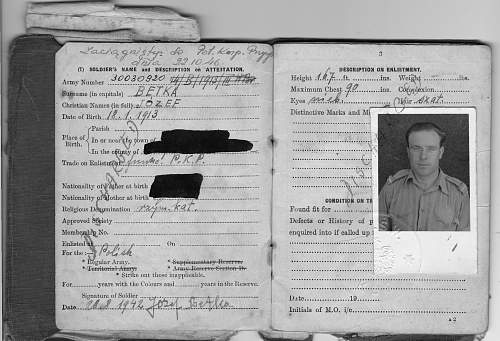 Zaciągnięty do Pol. Korp. Przys.
dnia 22.10.46
(1) SOLDIER'S NAME and DESCRIPTION on ATTESTATION.
Army Number 30030920
Surname (in capitals) BETKA
Christian Names (in full) JÓZEF
Date of Birth 18.1.1913
Place of Birth.
Parish
In or near town of
In the county of
Trade on Enlistment P.K.P.
Nationality of Father at birth
Nationality of Mother at birth
Religious Denomination rzym. kat.
Approved Society
Membership No.
Enlisted On
For the :- Polish
* Regular Army. * Supplementary Reserve.
* Territorial Army. * Army Reserve Section D.
* Strike out those inapplicable.
For years with the Colours and years in the Reserve.
Signature of Soldier
Date 1942 Józef Betka
3
DESCRIPTION ON ENLISTMENT.
Height 167 ft. ins. Weight lbs.
Maximum Chest 90 ins. Complexion
Eyes nieb. Hair szat.
Distinctive Marks and
CONDITION ON
Found fit for
Defects or History of
enquired into if called up
Date 19
Initials of M.O. i/c
A 2
DISCHARGED